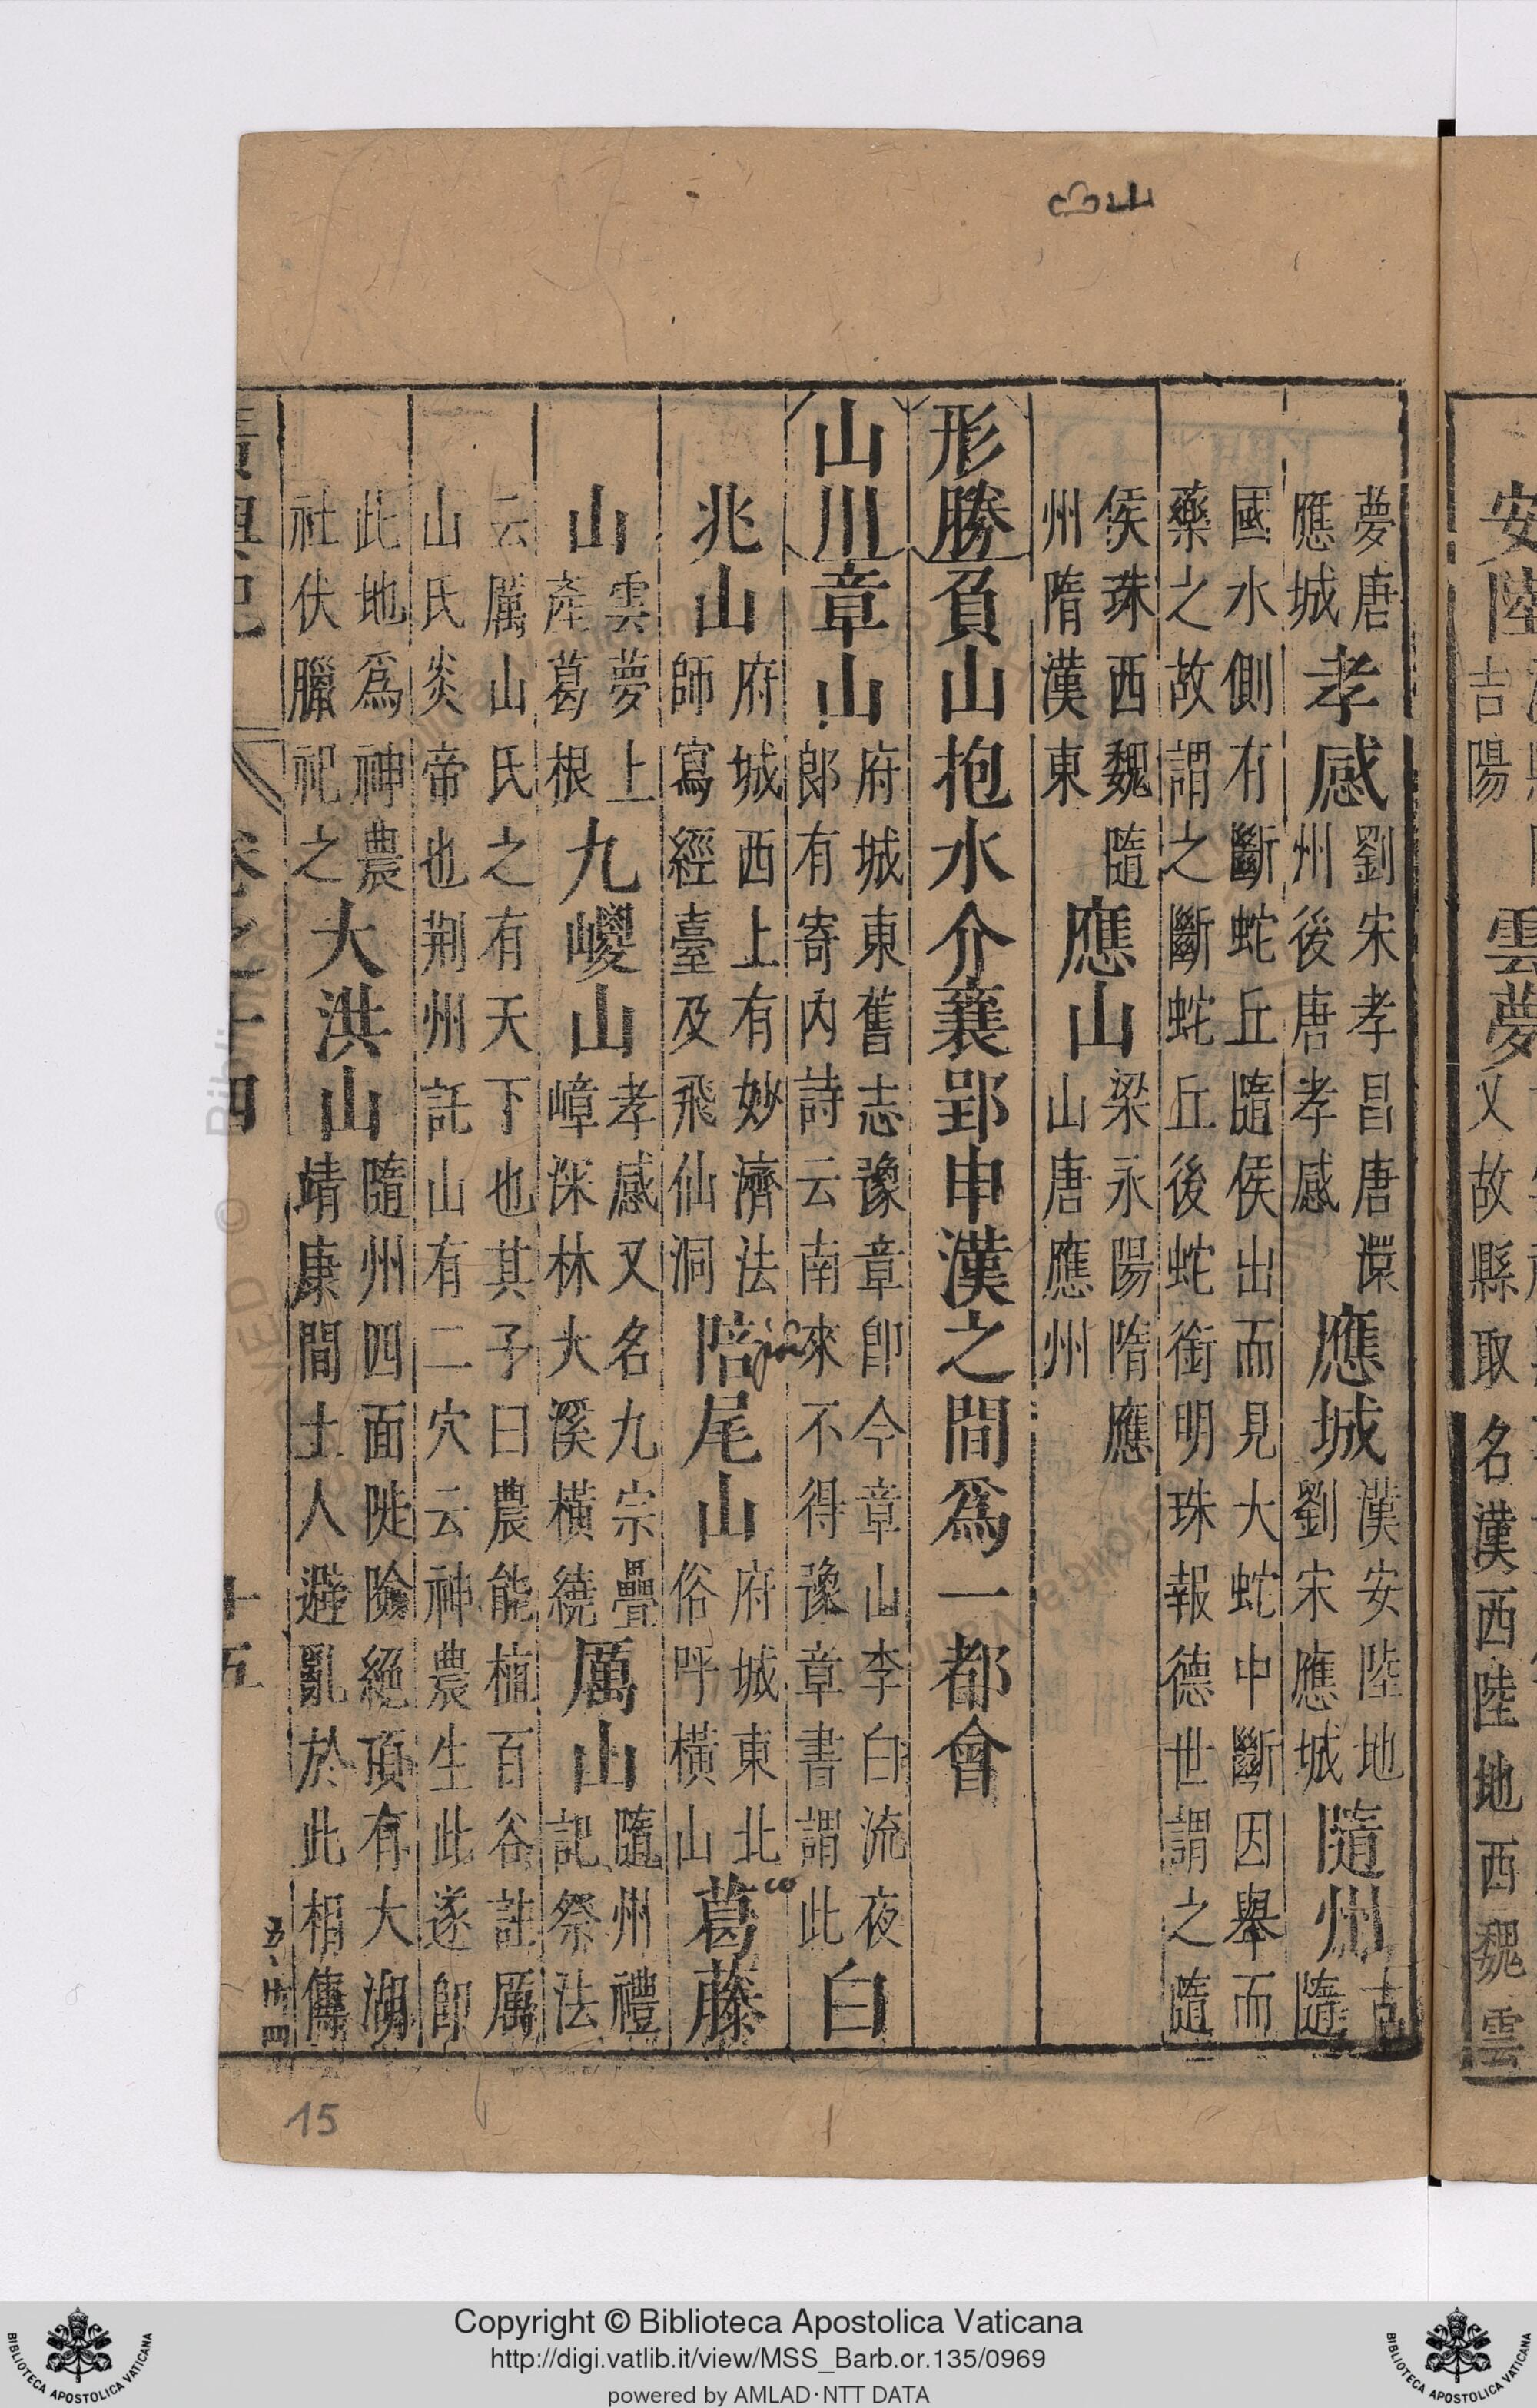 安陸吉陽雲夢又故縣取名漢西陸地西魏雲
夢唐應城孝感劉宋孝昌唐還州後唐孝感應城漢安陸地劉宋應城隨州古隨
國水側有斷蛇丘隨侯出而見大蛇中斷因舉而藥之故謂之斷蛇丘後蛇銜明珠報德世謂之隨
侯珠西魏隨州隋漢東應山梁永陽隋應山唐應州
形勝負山抱水介襄郢申漢之間爲一都會
山川章山府城東舊志豫章卽今章山李白流夜郎有寄内詩云南來不得豫章書謂此白
兆山府城西上有妙濟法師寫經臺及飛仙洞陪尾山府城東北俗呼橫山葛藤
山雲夢上產葛根九嵕山孝感又名九宗疊嶂深林大溪橫繞厲山隨州禮記祭法
云厲山氏之有天下也其子曰農能植百谷註厲山氏炎帝也荆州記山有二穴云神農生此遂卽
此地爲神農社伏臘祀之大洪山隨州四面陡險絕頂有大湖靖康間土人避亂於此相傳
廣輿記 卷之十四 十五
15
Copyright © Biblioteca Apostolica Vaticana
http://digi.vatlib.it/view/MSS_Barb.or.135/0969
powered by AMLAD·NTT DATA
BIBLIOTECA APOSTOLICA VATICANA
BIBLIOTECA APOSTOLICA VATICANA